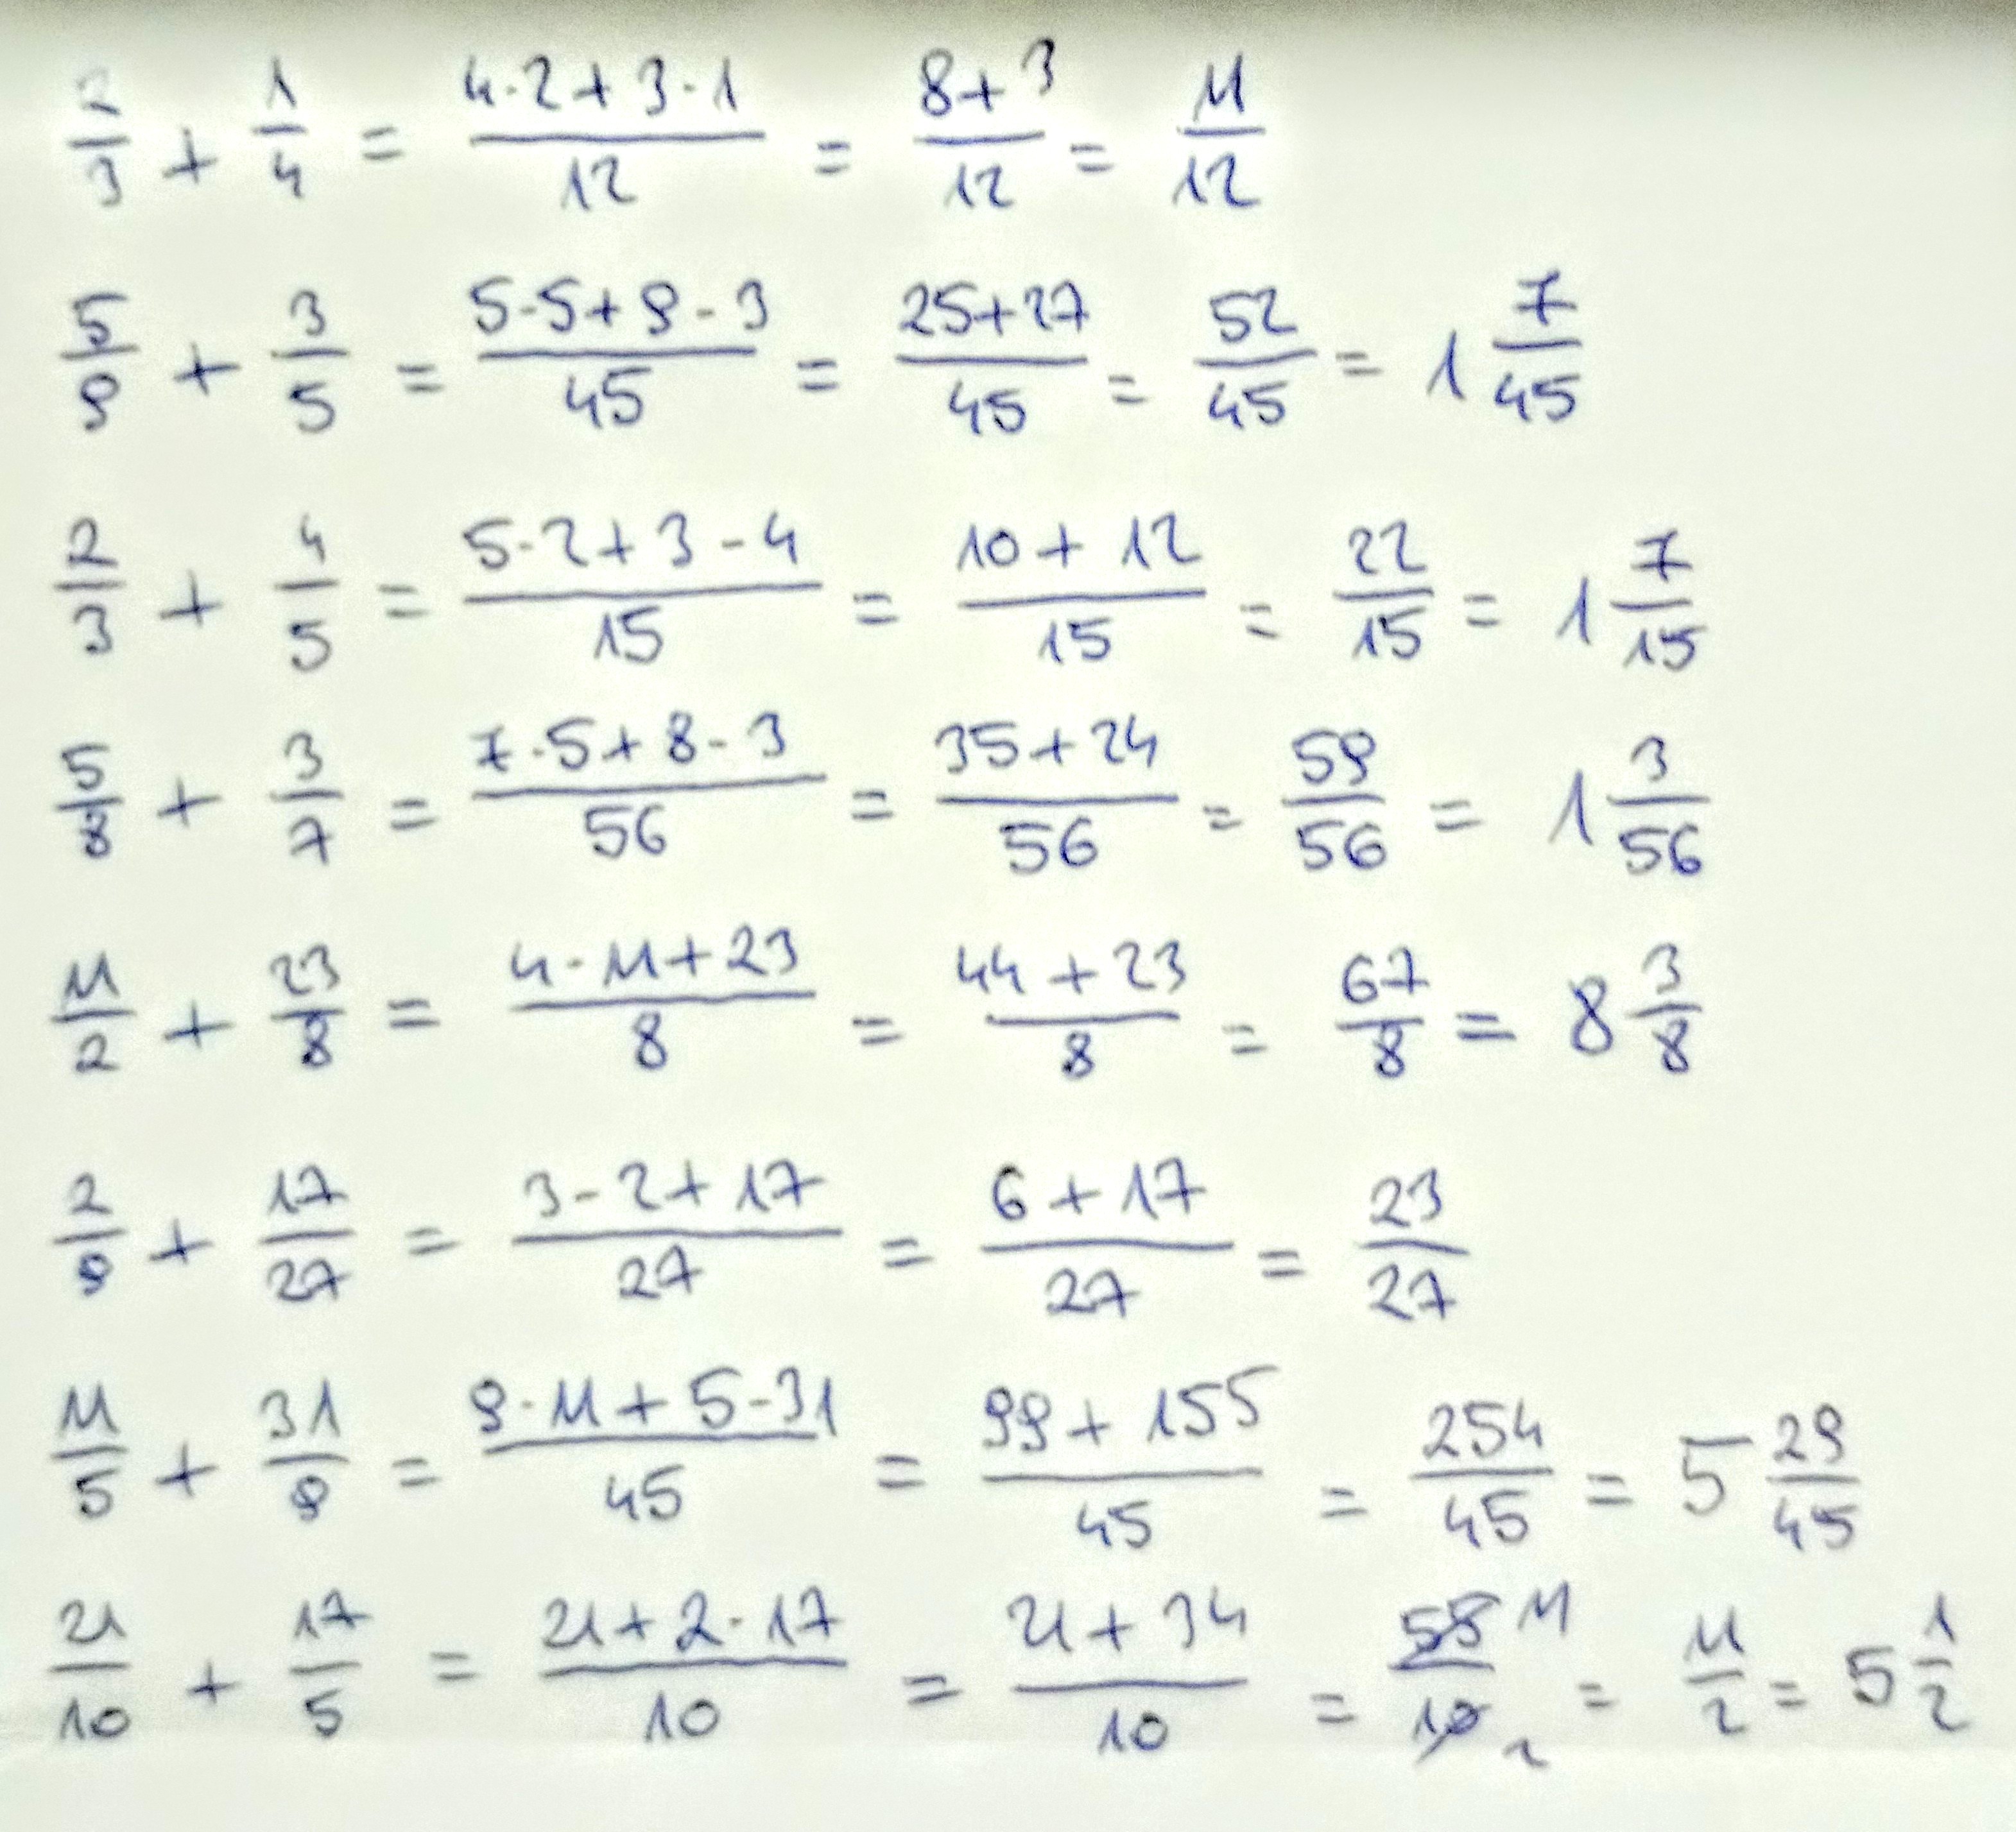 2/3 + 1/4 = (4·2+3·1)/12 = (8+3)/12 = 11/12
5/9 + 3/5 = (5·5+9·3)/45 = (25+27)/45 = 52/45 = 1 7/45
2/3 + 4/5 = (5·2+3·4)/15 = (10+12)/15 = 22/15 = 1 7/15
5/8 + 3/7 = (7·5+8·3)/56 = (35+24)/56 = 59/56 = 1 3/56
11/2 + 23/8 = (4·11+23)/8 = (44+23)/8 = 67/8 = 8 3/8
2/9 + 17/27 = (3·2+17)/27 = (6+17)/27 = 23/27
11/5 + 31/9 = (9·11+5·31)/45 = (99+155)/45 = 254/45 = 5 29/45
21/10 + 17/5 = (21+2·17)/10 = (21+34)/10 = 55/10 11/2 = 11/2 = 5 1/2